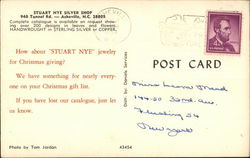 STUART NYE SILVER SHOP
940 Tunnel Rd. — Asheville, N.C. 28805
Complete catalogue is available on request showing over 200 designs in leaves and flowers.
HANDWROUGHT in STERLING SILVER or COPPER.
How about "STUART NYE" jewelry
for Christmas giving?
We have something for nearly every-
one on your Christmas gift list.
If you have lost our catalogue, just let
us know.
Photo by Tom Jordan
43454
POST CARD
Miss
Flushing 54
New York